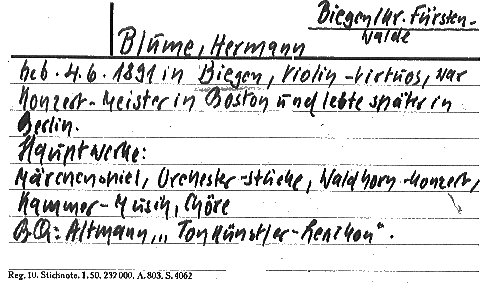 Biegen/Kr. Fürsten-
walde
Blume, Hermann
Geb. 4.6.1891 in Biegen, Violin-Virtuos, war
Konzert-Meister in Boston und lebte später in
Berlin.
Hauptwerke:
Märchenspiel, Orchester-Stücke, Waldhorn-Konzert,
Kammer-Musik, Chöre
BQ: Altmann, „Tonkünstler-Lexikon".
Reg. 10. Stichnote. 1. 50. 232 000. A. 803. S. 4062